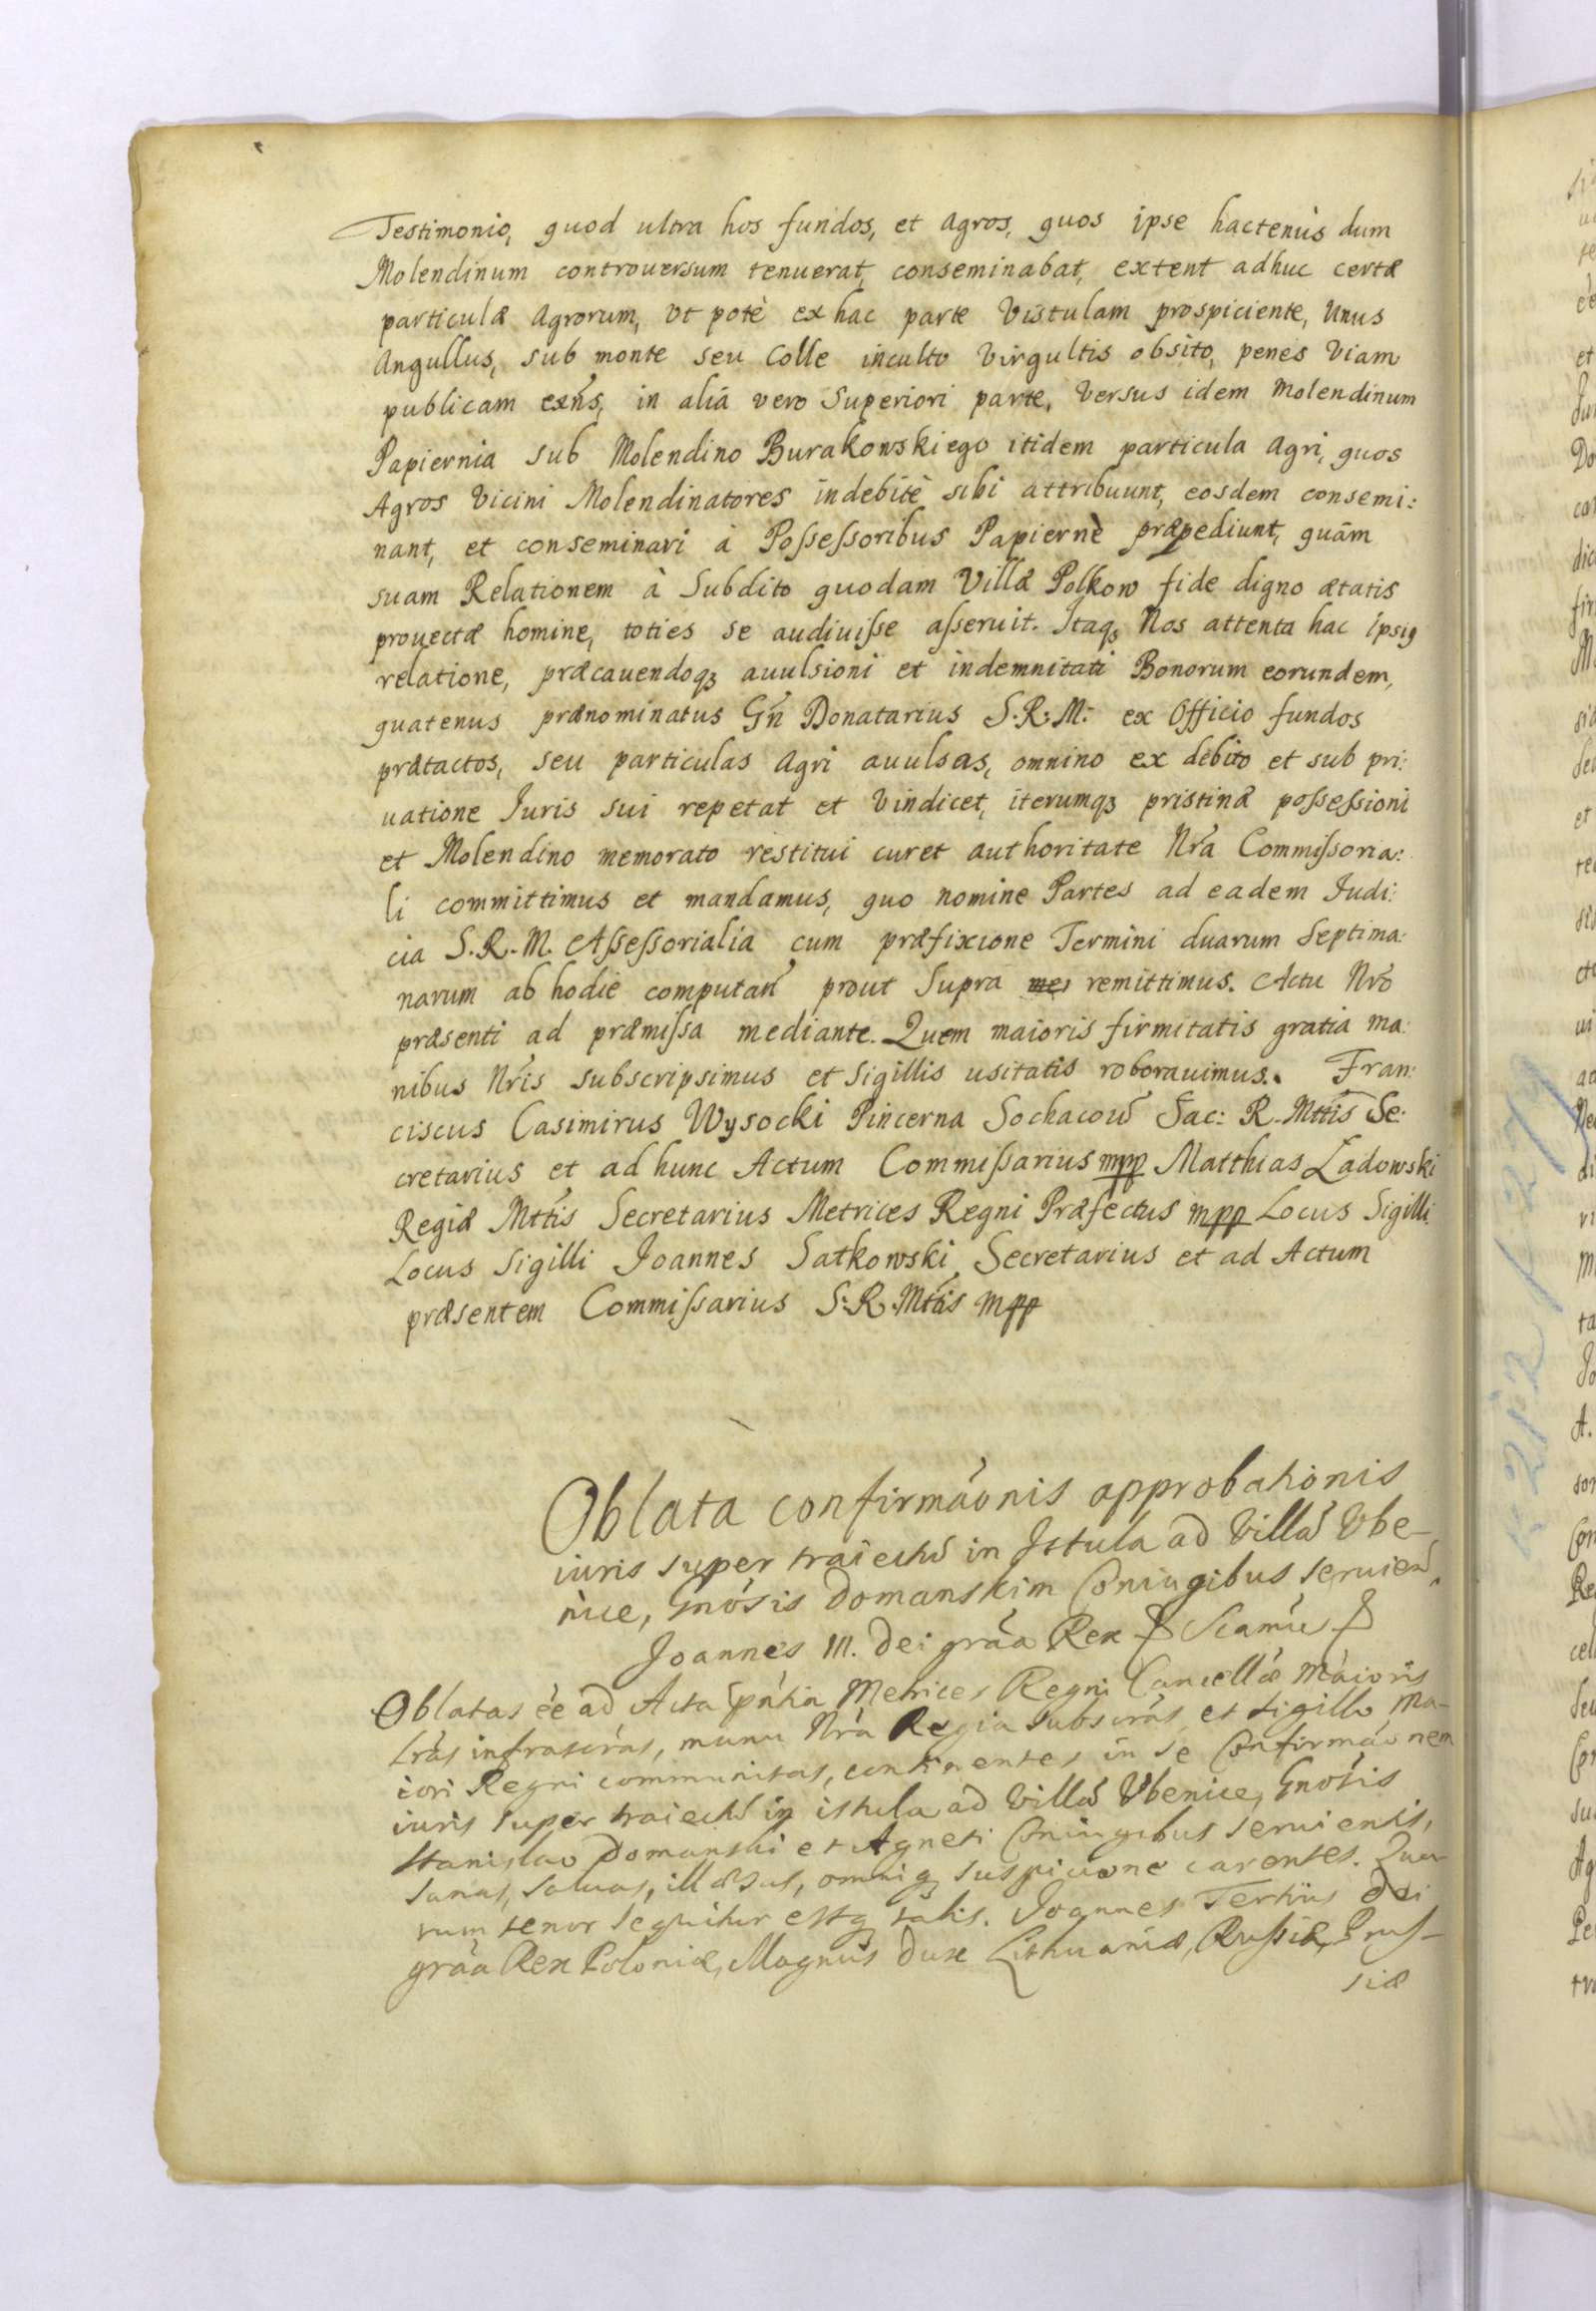 Testimonio, quod ultra hos fundos, et agros, quos ipse hactenùs dum
Molendinum controuersum tenuerat, conseminabat, extent adhuc certæ
particulæ Agrorum, vt potè ex hac parte Vistulam prospiciente, Unus
Angullus, sub monte seu Colle inculto Virgultis obsito, penes Viam
publicam exñs, in aliâ vero Superiori parte, Versus idem Molendinum
Papiernia sub Molendino Burakowskiego itidem particula agri, quos
Agros Vicini Molendinatores indebitè sibi attribuunt, eosdem consemi:
nant, et conseminari à Poſseſsoribus Papiernè præpediunt, quām
suam Relationem à Subdito quodam Villæ Polkow fide digno ætatis
prouectæ homine, toties se audiuiſse aſseruit. Itaqꝫ Nos attenta hac ipsiꝯ
relatione, præcauendoqꝫ auulsioni et indemnitati Bonorum eorundem,
quatenus prænominatus Gñ Donatarius S.R:M: ex Officio fundos
prætactos, seu particulas Agri auulsas, omnino ex debito et sub pri:
uatione Iuris sui repetat et Vindicet, iterumqꝫ pristinæ poſseſsioni
et Molendino memorato restitui curet authoritate Nrã Commiſsoria:
li committimus et mandamus, quo nomine Partes ad eadem Iudi:
cia S.R.M. Aſseſsorialia cum præfixione Termini duarum Septima:
narum ab hodie computañ prout Supra remittimus. Actu Nrõ
præsenti ad præmiſsa mediante. Quem maioris firmitatis gratia ma:
nibus Nrĩs subscripsimus et Sigillis usitatis roborauimus. Fran:
ciscus Casimirus Wysocki Pincerna Sochacoẅ Sac: R. Mttis Se:
cretarius et ad hunc Actum Commiſsarius mpp Matthias Ładowski
Regiæ Mttis Secretarius Metrices Regni Præfectus mpp Locus Sigilli.
Locus Sigilli Joannes Satkowski Secretarius et ad Actum
præsentem Commiſsarius S:R:Mttis mpp
Oblata confirmãonis approbationis
iuris super traiectũ in Istula ad Villã Vbe-
nice, Gnõsis Domanskim Coniugibus seruieñ.
Joannes III. Dei grãa Rex
Oblatas ẽe ad Acta pñtia Metrices Regni Cancellæ Maioris
lrãs infrascrãs, manu Nrã Regia subscrãs et sigillo Ma-
iori Regni communitas, continentes in se Confirmãonem
iuris super traiectũ in istula ad Villã Vbenice, Gnõsis
Stanislao Domanski et Agneti Coniugibus seruientis,
sanas, saluas, illæsas, omniqꝫ suspicione carentes. Qua-
rum tenor sequitur estqꝫ talis. Joannes Tertius Dei
grãa Rex Poloniæ, Magnus Dux Lithuaniæ, Ruſsiæ, Pruſ-
siæ